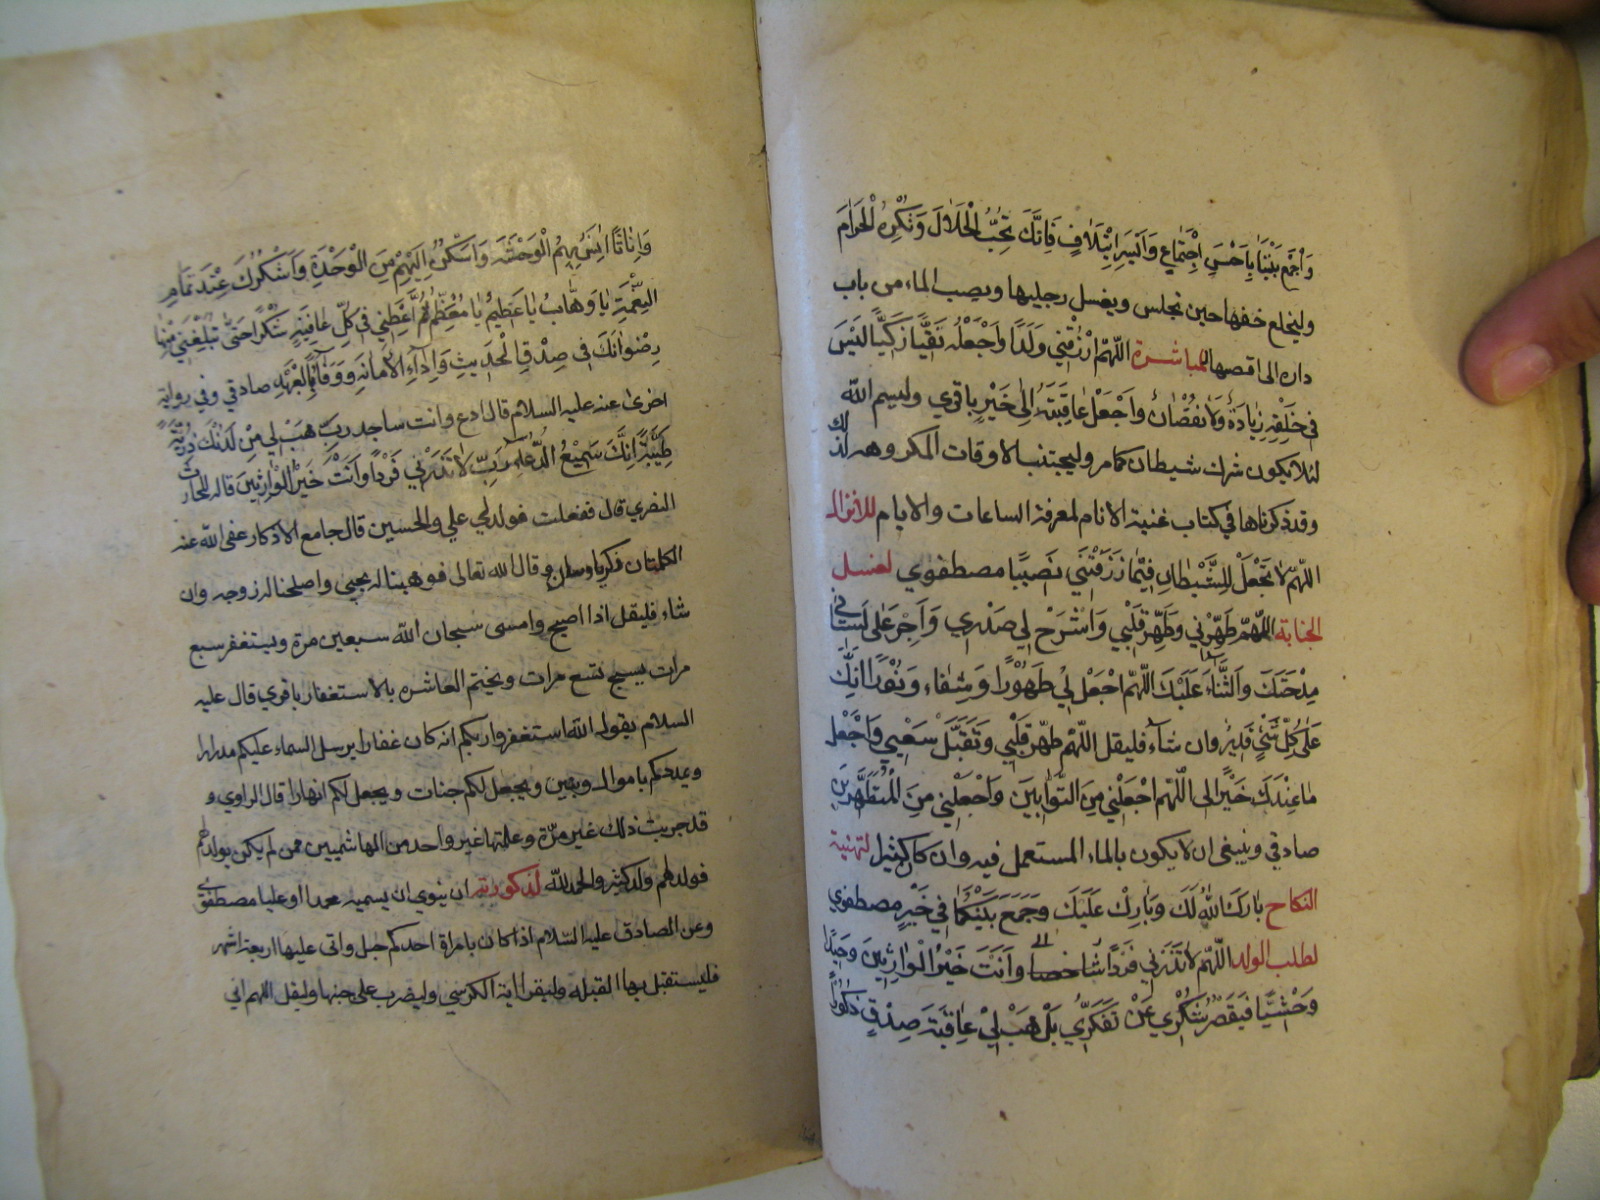 وَاجْمَعْ بَيْنَنَا بِاَحْسَنِ اِجْتِمَاعٍ وَاَيْسَرِ اِيْتِلَافٍ فَاِنَّكَ تُحِبُّ الْحَلَالَ وَتُكْرِهُ الْحَرَامَ
وليخلع خفها حين تجلس ويغسل رجليها ويصب الماء من باب
داره الى اقصيها للمباشرة اللّهمّ ارْزُقْنِي وَلَدًا وَاجْعَلْهُ تَقِيًّا زَكِيًّا لَيْسَ
فِي خَلْقِهِ زِيَادَةٌ وَلَا نُقْصَانٌ وَاجْعَلْ عَاقِبَتَهُ اِلَى خَيْرٍ باقري وليسم الله
لئلا يكون شرك شيطان كما مر وليجتنب الاوقات المكروهه لذلك
وقد ذكرناها في كتاب غنية الانام لمعرفة الساعات والايام للانزال
اللّهمّ لَا تَجْعَلْ لِلشَّيْطَانِ فِيمَا رَزَقْتَنِي نَصِيبًا مصطفوي لغسل
الجنابة اللّهمّ طَهِّرْنِي وَطَهِّرْ قَلْبِي وَاشْرَحْ لِي صَدْرِي وَاَجْرِ عَلَى لِسَانِي
مِدْحَتَكَ وَالثَّنَاءَ عَلَيْكَ اللّهمّ اجْعَلْ لِي طَهُورًا وَشِفَاءً وَنُورًا اِنَّكَ
عَلَى كُلِّ شَيْءٍ قَدِيرٌ وان شاء فليقل اللّهمّ طَهِّرْ قَلْبِي وَتَقَبَّلْ سَعْيِي وَاجْعَلْ
مَا عِنْدَكَ خَيْرًا لِي اللّهمّ اجْعَلْنِي مِنَ التَّوَّابِينَ وَاجْعَلْنِي مِنَ الْمُتَطَهِّرِينَ
صادقي وينبغي ان لا يكون بالماء المستعمل فيه وان كان كثيرا لتهنية
النكاح بَارَكَ اللهُ لَكَ وَبَارَكَ عَلَيْكَ وَجَمَعَ بَيْنَكُمَا فِي خَيْرٍ مصطفوي
لطلب الولد اللّهمّ لَا تَذَرْنِي فَرْدًا وَاَنْتَ خَيْرُ الْوَارِثِينَ وَحِيدًا
وَحْشِيًّا فَيَقْصُرَ شُكْرِي عَنْ تَفَكُّرِي بَلْ هَبْ لِي عَاقِبَةَ صِدْقٍ ذُكُورًا
وَاِنَاثًا اٰنَسُ بِهِمْ الْوَحْشَةَ وَاَسْكُنُ اِلَيْهِمْ مِنَ الْوَحْدَةِ وَاَشْكُرُكَ عِنْدَ تَمَامِ
النِّعْمَةِ يَا وَهَّابُ يَا عَظِيمُ يَا مُعَظِّمُ ثُمَّ اَعْطِنِي فِي كُلِّ عَافِيَةٍ شُكْرًا حَتَّى تُبَلِّغَنِي مِنْهَا
رِضْوَانَكَ فِي صِدْقِ الْحَدِيثِ وَاَدَاءِ الْاَمَانَةِ وَوَفَاءٍ بِالْعَهْدِ صادقي وفي رواية
اخرى عنه عليه السلام قال ادع وانت ساجد رَبِّ هَبْ لِي مِنْ لَدُنْكَ ذُرِّيَّةً
طَيِّبَةً اِنَّكَ سَمِيعُ الدُّعَاءِ رَبِّ لَا تَذَرْنِي فَرْدًا وَاَنْتَ خَيْرُ الْوَارِثِينَ قاله للحارث
النضري قال ففعلت فولد لي علي والحسين قال جامع الاذكار عفى الله عنه
الكلمتان وقال الله تعالى فوهبنا له يحيى واصلحنا له زوجه وان
شاء فليقل اذا اصبح وامسى سبحان الله سبعين مرة ويستغفر سبع
مرات يسبح تسع مرات ويختم العاشره بالاستغفار باقري قال عليه
السلام يقول الله استغفروا ربكم انه كان غفارا يرسل السماء عليكم مدرارا
ويمددكم باموال وبنين ويجعل لكم جنات ويجعل لكم انهارا قال الراوي و
قد جربت ذلك غير مرّة وعلمتها غير واحد من الهاشميين ممن لم يكن يولد لهم
فولد لهم ولد كثير والحمد لله لذكوريته ان ينوي ان يسميه محمدا او عليا مصطفوي
وعن الصادق عليه السّلام اذا كان بامراة احدكم حبل واتى عليها اربعة اشهر
فليستقبل بها القبلة وليقرا اية الكرسي وليضرب على جنبها وليقل اللهم اني